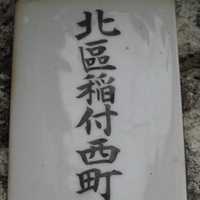 北區稲付西町